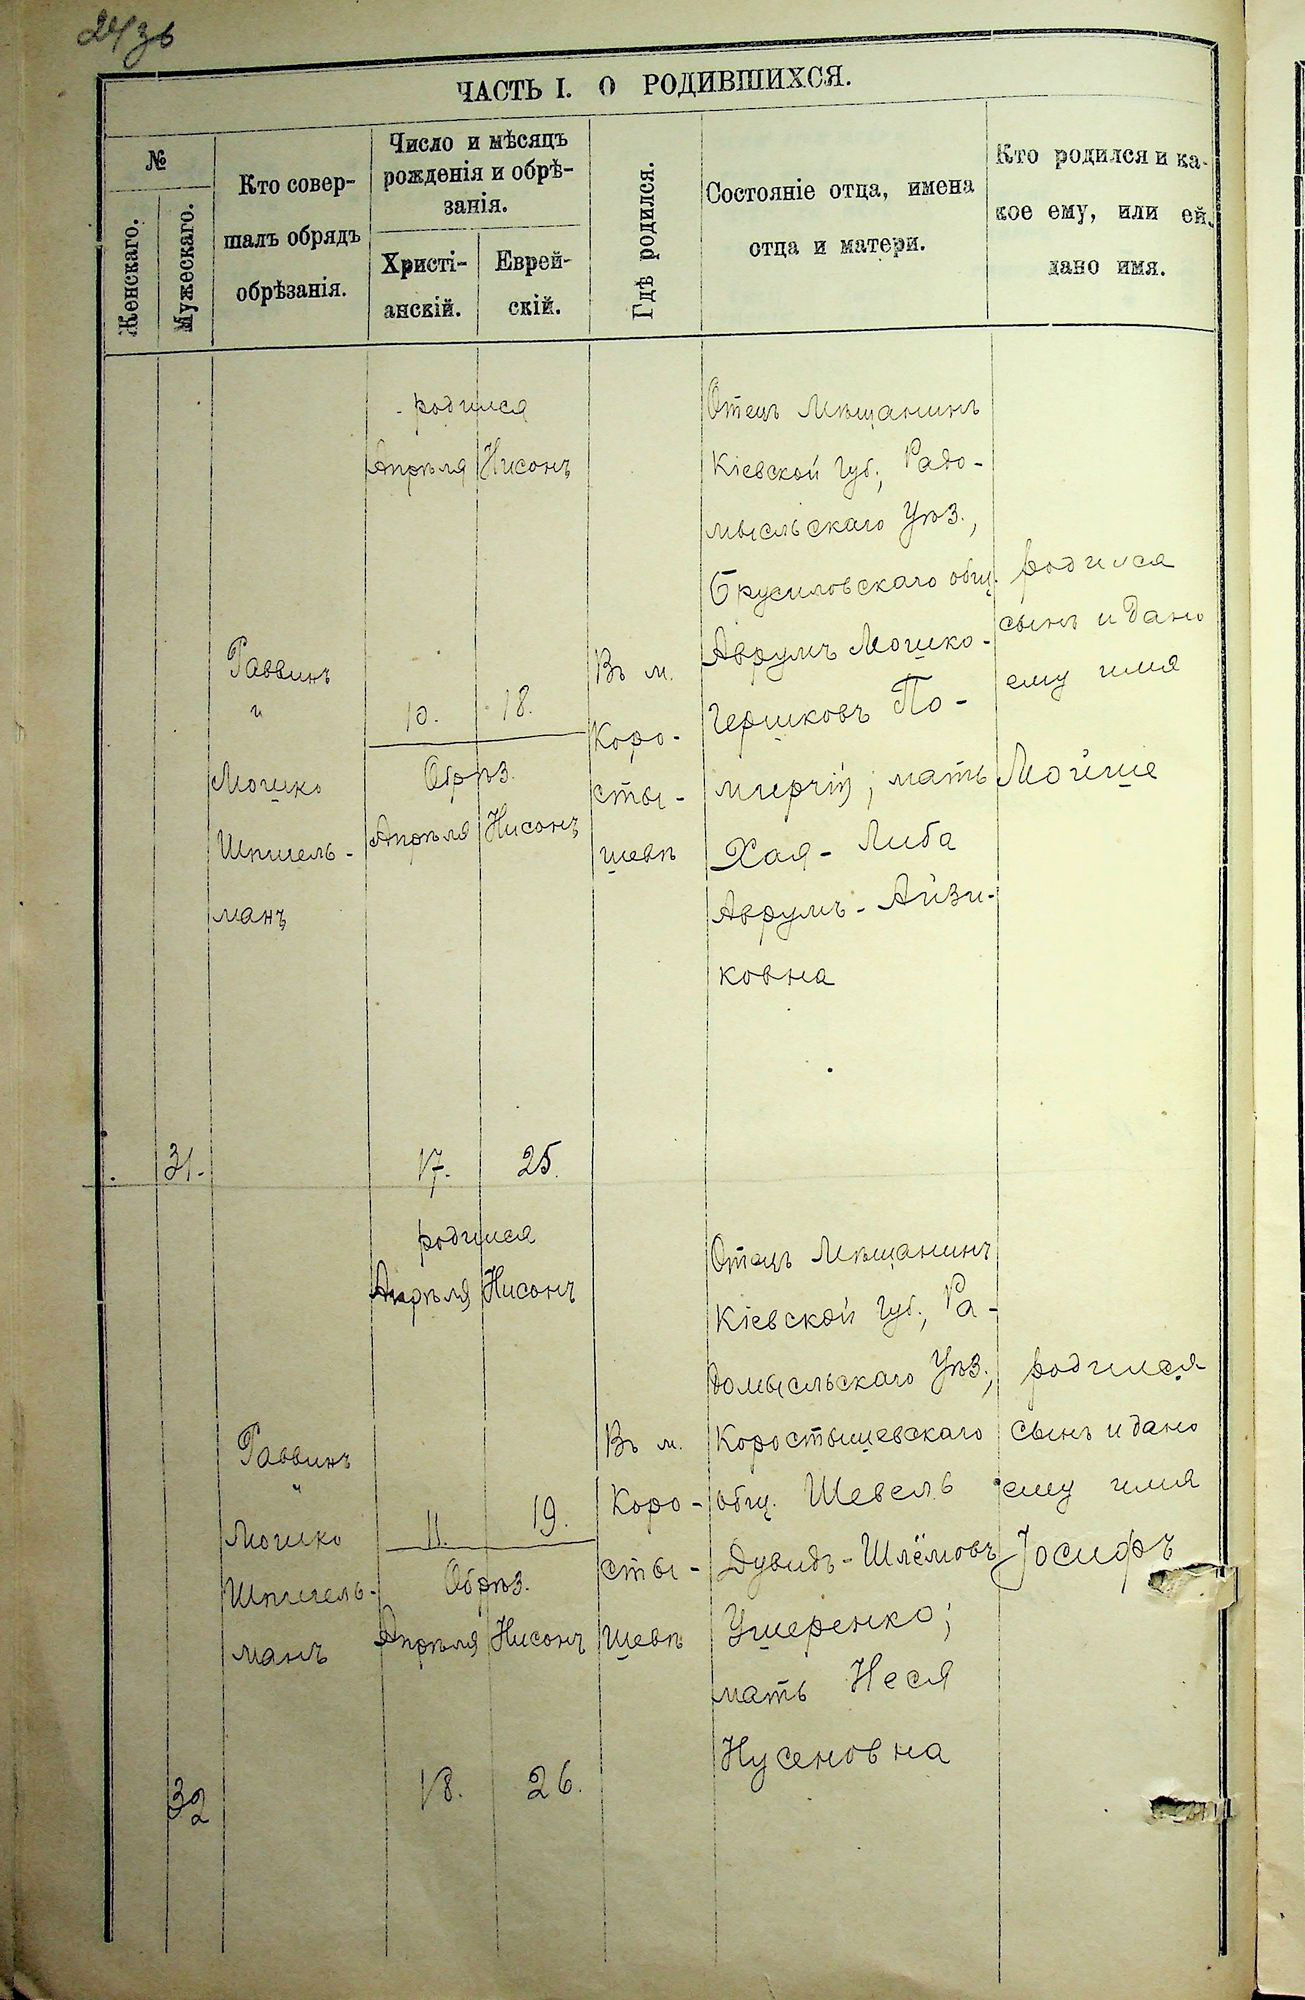 ЧАСТЬ I. О РОДИВШИХСЯ.
№
Женскаго.
Мужескаго.
Кто совер-
шалъ обрядъ
обрѣзанія.
Число и мѣсяцъ
рожденія и обрѣ-
занія.
Христі-
анскій.
Еврей-
скій.
Гдѣ родился.
Состояніе отца, имена
отца и матери.
Кто родился и ка-
кое ему, или ей,
дано имя.
31.
Раввинъ
и
Мошко
Шпигель-
манъ
родился
Апрѣля Нисонъ
10. 18.
Обрѣз.
Апрѣля Нисонъ
17. 25.
Въ м.
Коро-
сты-
шевѣ
Отецъ Мѣщанинъ
Кіевской Губ., Радо-
мысльскаго Уѣз.,
Брусиловскаго общ.
Аврумъ Мошко-
Гершковъ По-
мирчій; мать
Хая-Либа
Аврумъ-Айзи-
ковна
родился
сынъ и дано
ему имя
Мойше
32
Раввинъ
и
Мошко
Шпигель-
манъ
родился
Апрѣля Нисонъ
11. 19.
Обрѣз.
Апрѣля Нисонъ
18. 26.
Въ м.
Коро-
сты-
шевѣ
Отецъ Мѣщанинъ
Кіевской Губ., Ра-
домысльскаго Уѣз.,
Коростышевскаго
общ. Шевель
Дувидъ-Шлёмовъ
Ушеренко;
мать Неся
Нусеновна
родился
сынъ и дано
ему имя
Іосифъ